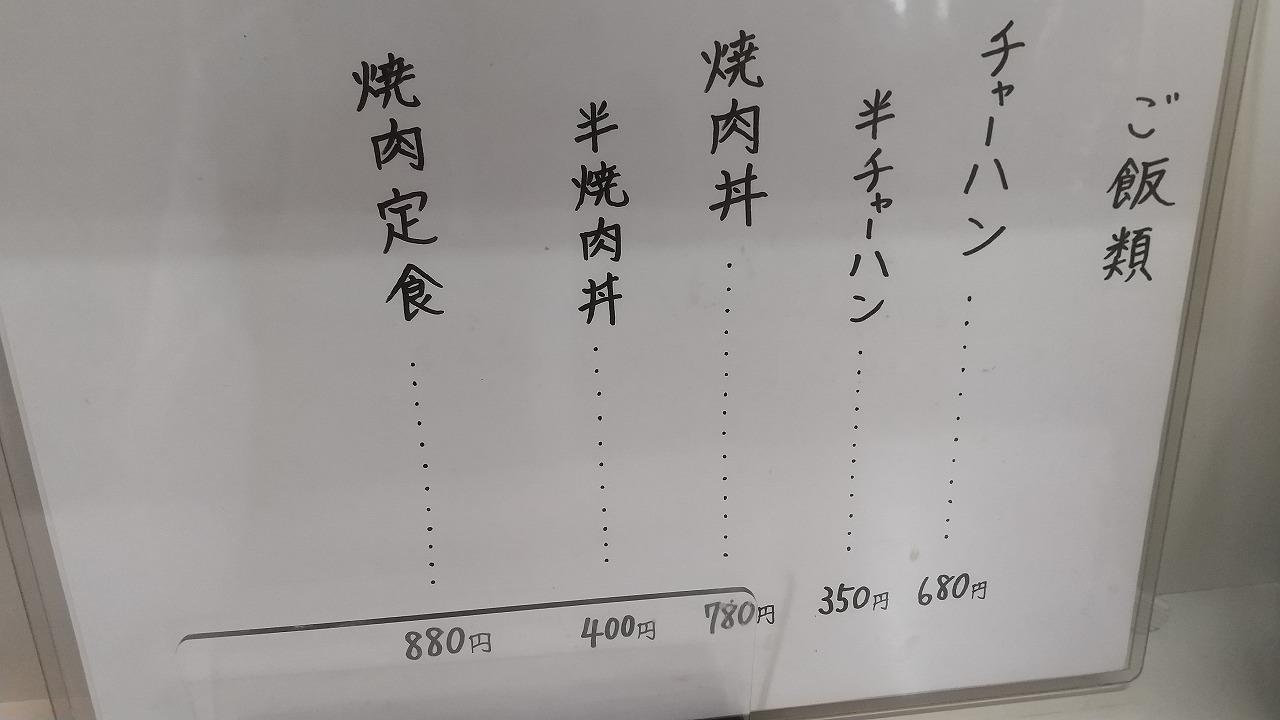 ご飯類
チャーハン‥‥‥‥‥‥680円
半チャーハン‥‥‥‥‥‥350円
焼肉丼‥‥‥‥‥‥780円
半焼肉丼‥‥‥‥‥‥400円
焼肉定食‥‥‥‥‥‥880円